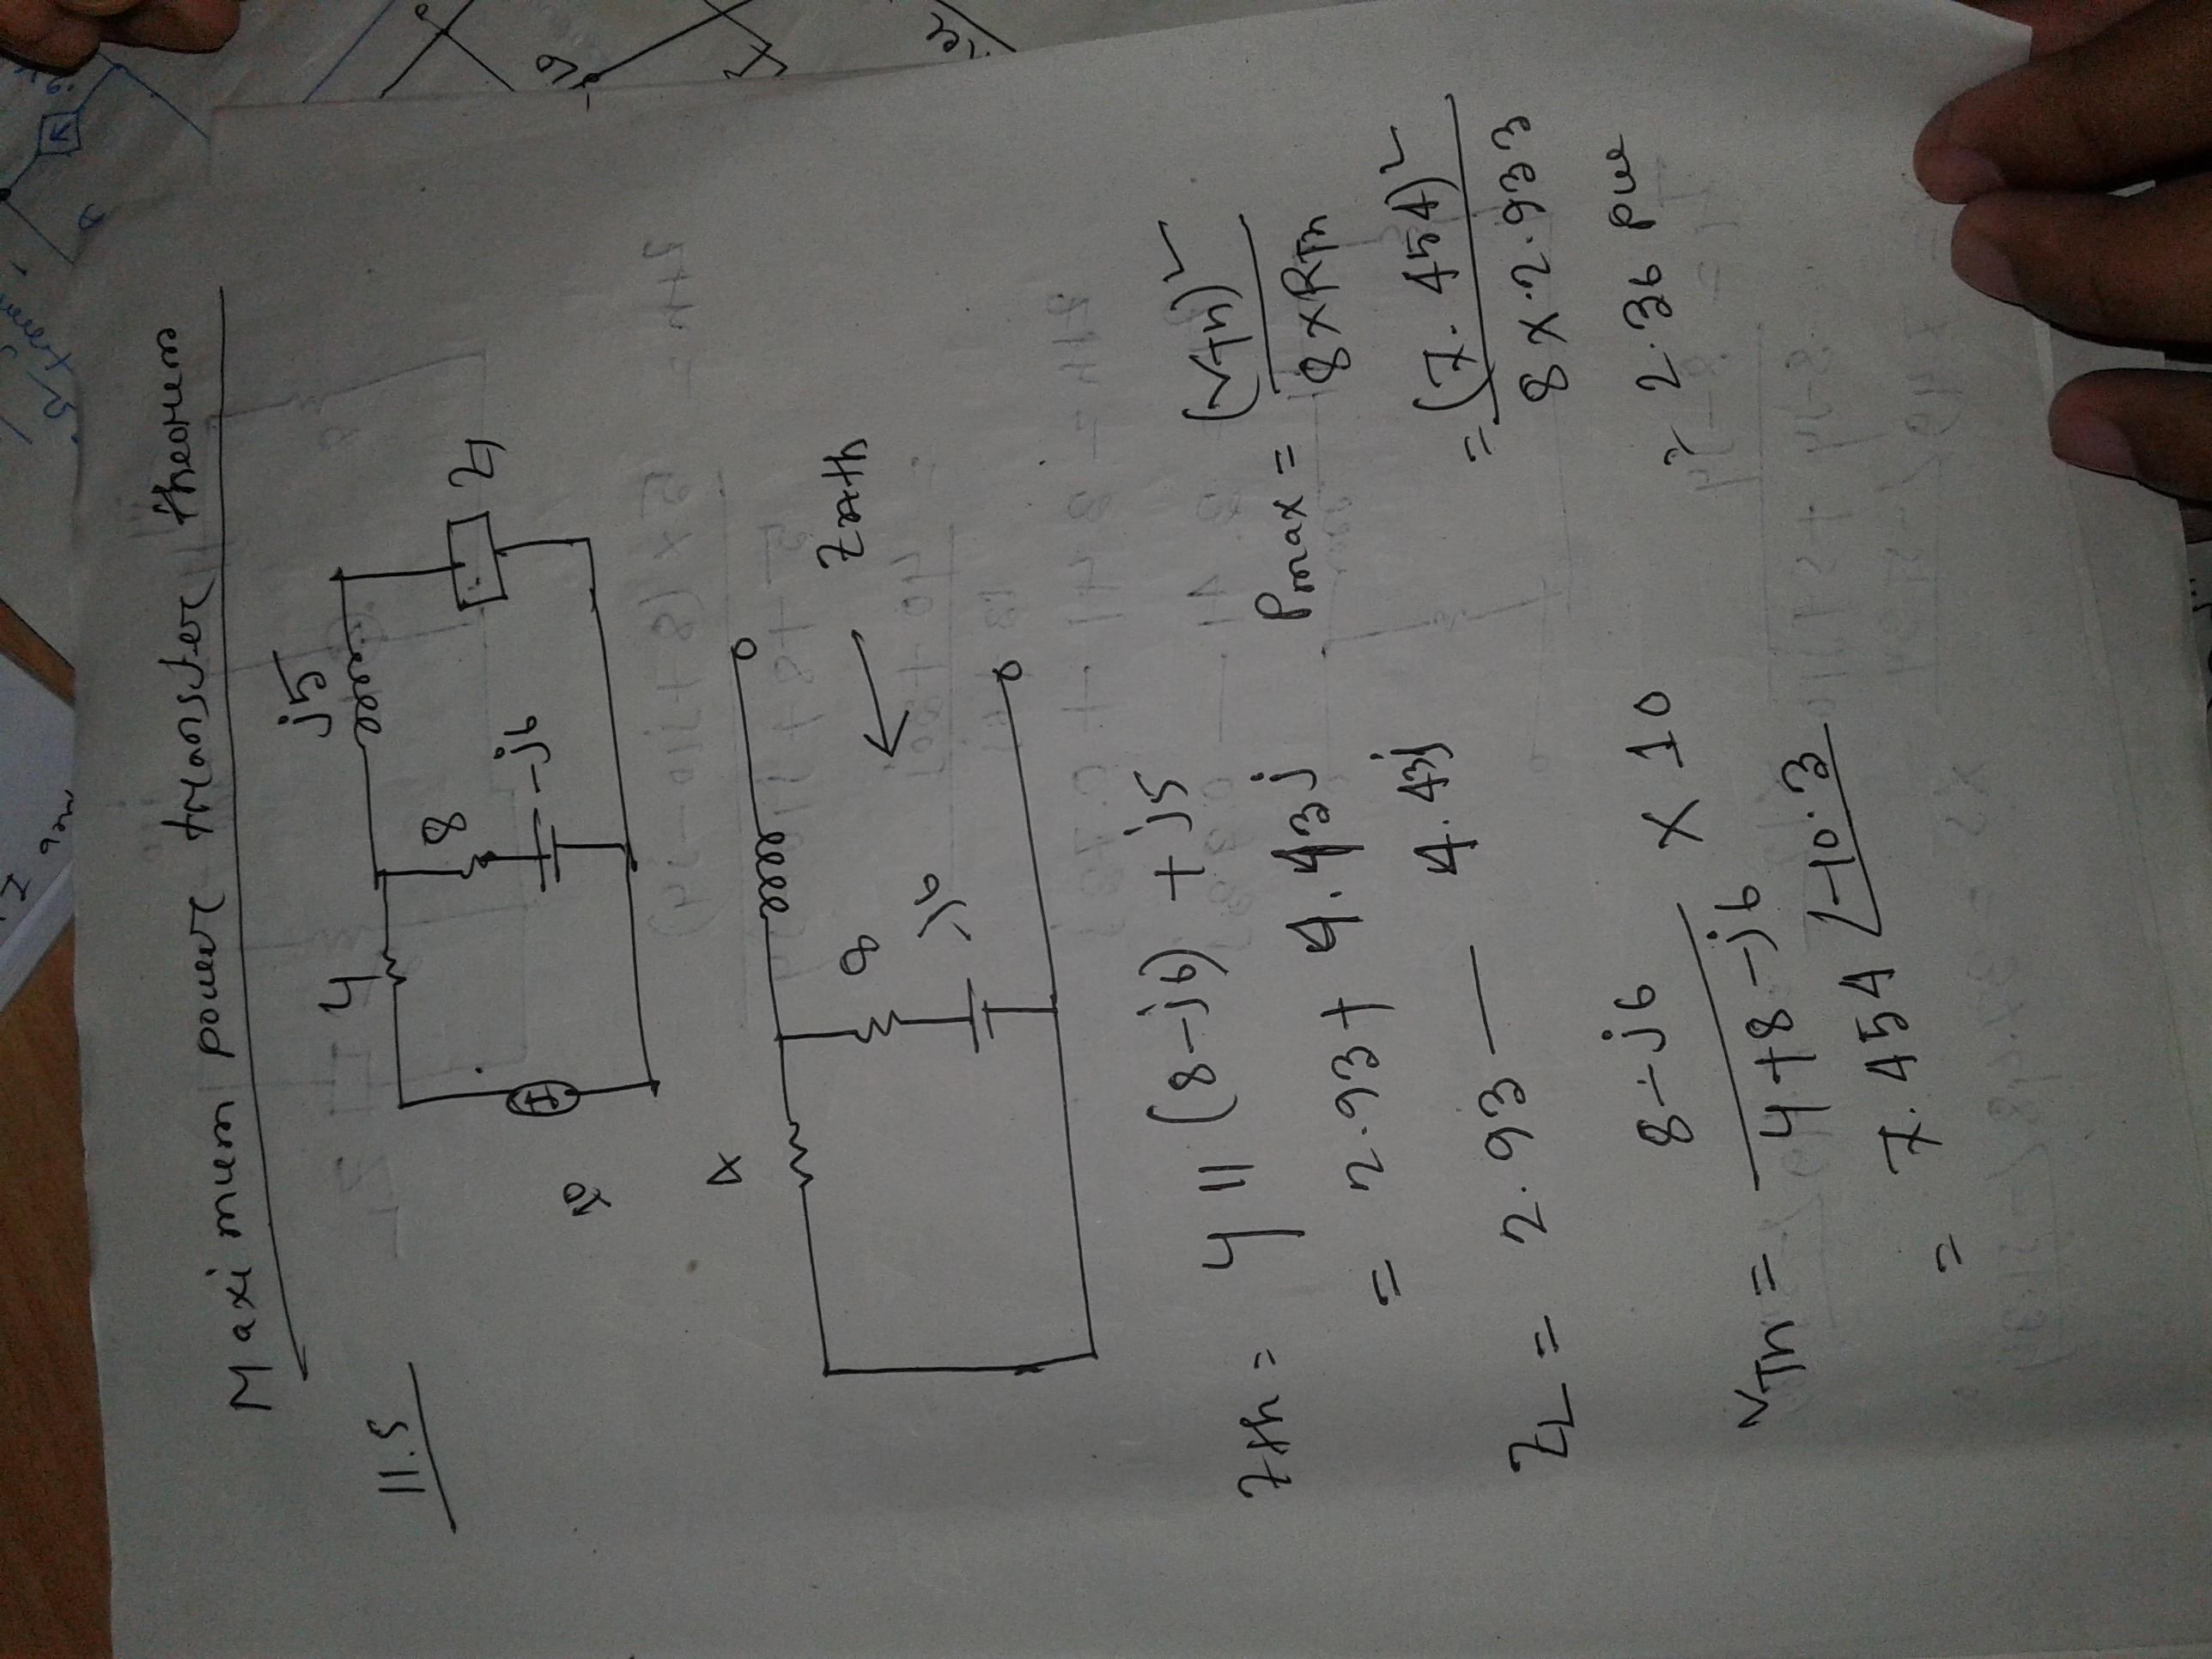 Maximum power transfer theorem
11.5
4
j5
8
-j6
10
4
8
-j6
Zth
Zth = 4 || (8-j6) + j5
= 2.93 + 4.43j
ZL = 2.93 — 4.43j
VTh = 8-j6 / 4+8-j6 × 10
= 7.454 ∠-10.3
Pmax = (VTh)² / 8×RTh
= (7.454)² / 8×2.933
= 2.36